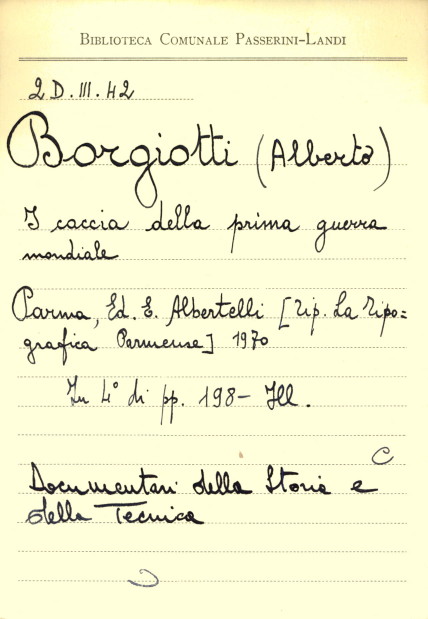 BIBLIOTECA COMUNALE PASSERINI-LANDI
2 D. III. 42
Borgiotti (Alberto)
I caccia della prima guerra
mondiale
Parma, Ed. E. Albertelli [Tip. La Tipo=
grafica Parmense] 1970
In 4° di pp. 198 - Ill.
C
Documentari della Storia e
della Tecnica